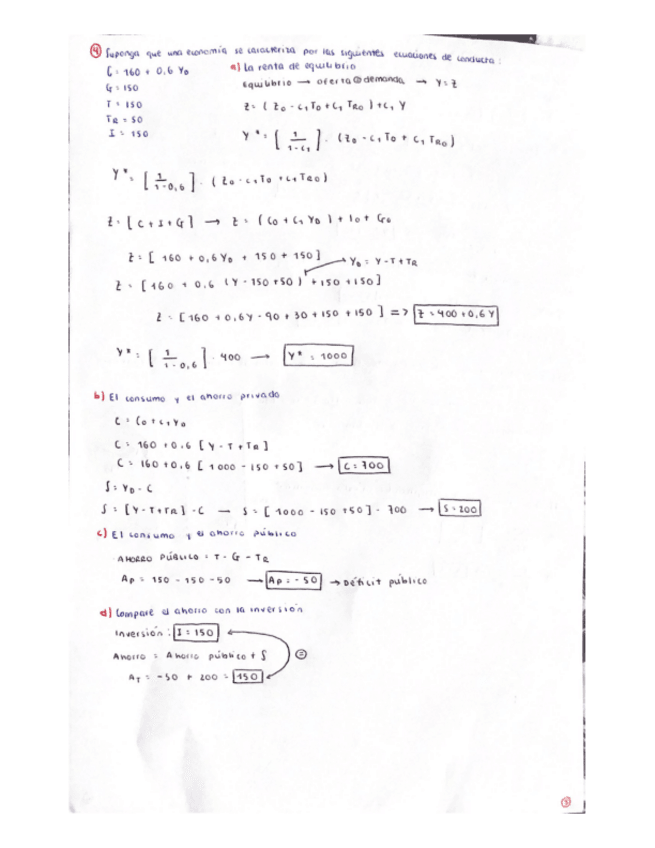 ④ Suponga que una economía se caracteriza por las siguientes ecuaciones de conducta:
C = 160 + 0,6 Y_D
G = 150
T = 150
TR = 50
I = 150
a) La renta de equilibrio
Equilibrio → oferta = demanda → Y = Z
Z = (Z0 - c1T0 + c1 TR0) + c1 Y
Y* = [1/1-c1] · (Z0 - c1T0 + c1 TR0)
Y* = [1/1-0,6] · (Z0 - c1T0 + c1TR0)
Z = [C + I + G] → Z = (C0 + C1 YD) + I0 + G0
Z = [160 + 0,6 YD + 150 + 150]
YD = Y - T + TR
Z = [160 + 0,6 (Y - 150 + 50) + 150 + 150]
Z = [160 + 0,6Y - 90 + 30 + 150 + 150] => Z = 400 + 0,6 Y
Y* = [1/1-0,6] · 400 → Y* = 1000
b) El consumo y el ahorro privado
C = C0 + c1YD
C = 160 + 0,6 [Y - T + TR]
C = 160 + 0,6 [1000 - 150 + 50] → C = 700
S = YD - C
S = [Y - T + TR] - C → S = [1000 - 150 + 50] - 700 → S = 200
c) El consumo y el ahorro público
AHORRO PÚBLICO = T - G - TR
AP = 150 - 150 - 50 → AP = - 50 → Déficit público
d) Compare el ahorro con la inversión
Inversión: I = 150
Ahorro = Ahorro público + S
=
AT = -50 + 200 = 150
③